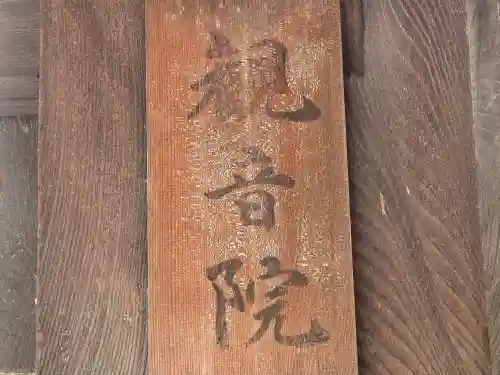 観音院